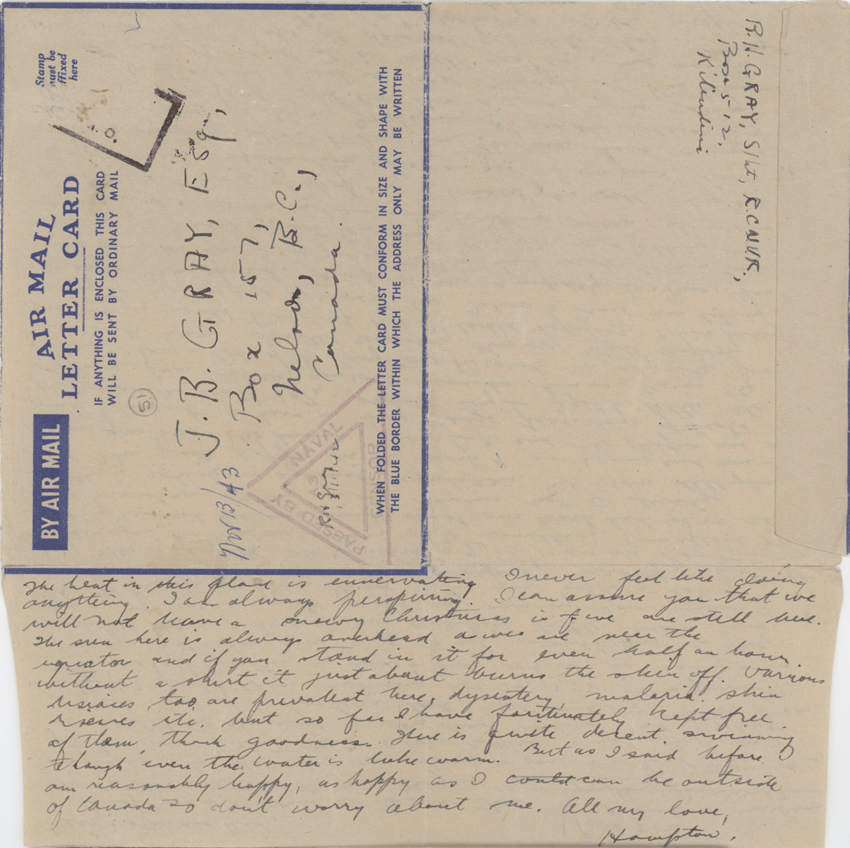 Stamp
must be
affixed
here
AIR MAIL
LETTER CARD
IF ANYTHING IS ENCLOSED THIS CARD
WILL BE SENT BY ORDINARY MAIL
BY AIR MAIL
51
J. B. GRAY, Esq,
Box 157,
Nelson, B.C.,
Canada.
Nov 13/43
PASSED BY
NAVAL
WHEN FOLDED THE LETTER CARD MUST CONFORM IN SIZE AND SHAPE WITH
THE BLUE BORDER WITHIN WHICH THE ADDRESS ONLY MAY BE WRITTEN
R.H. GRAY, S/Lt, R.C.N.V.R.,
Box 512,
Kilindini
The heat in this place is ennervating I never feel like doing
anything. I am always perspiring. I can assure you that we
will not have a snowy Christmas is five are still here.
The sun here is always overhead as we are near the
equator and if you stand in it for even half an hour
without a shirt it just about burns the skin off. Various
diseases, too, are prevalent here, dysentery, malaria, skin
diseases etc. but so far I have fortunately kept free
of them, thank goodness. There is quite decent swimming
though even the water is luke warm. But as I said before I
am reasonably happy, as happy as I could can be outside
of Canada so don't worry about me. All my love,
Hampton.